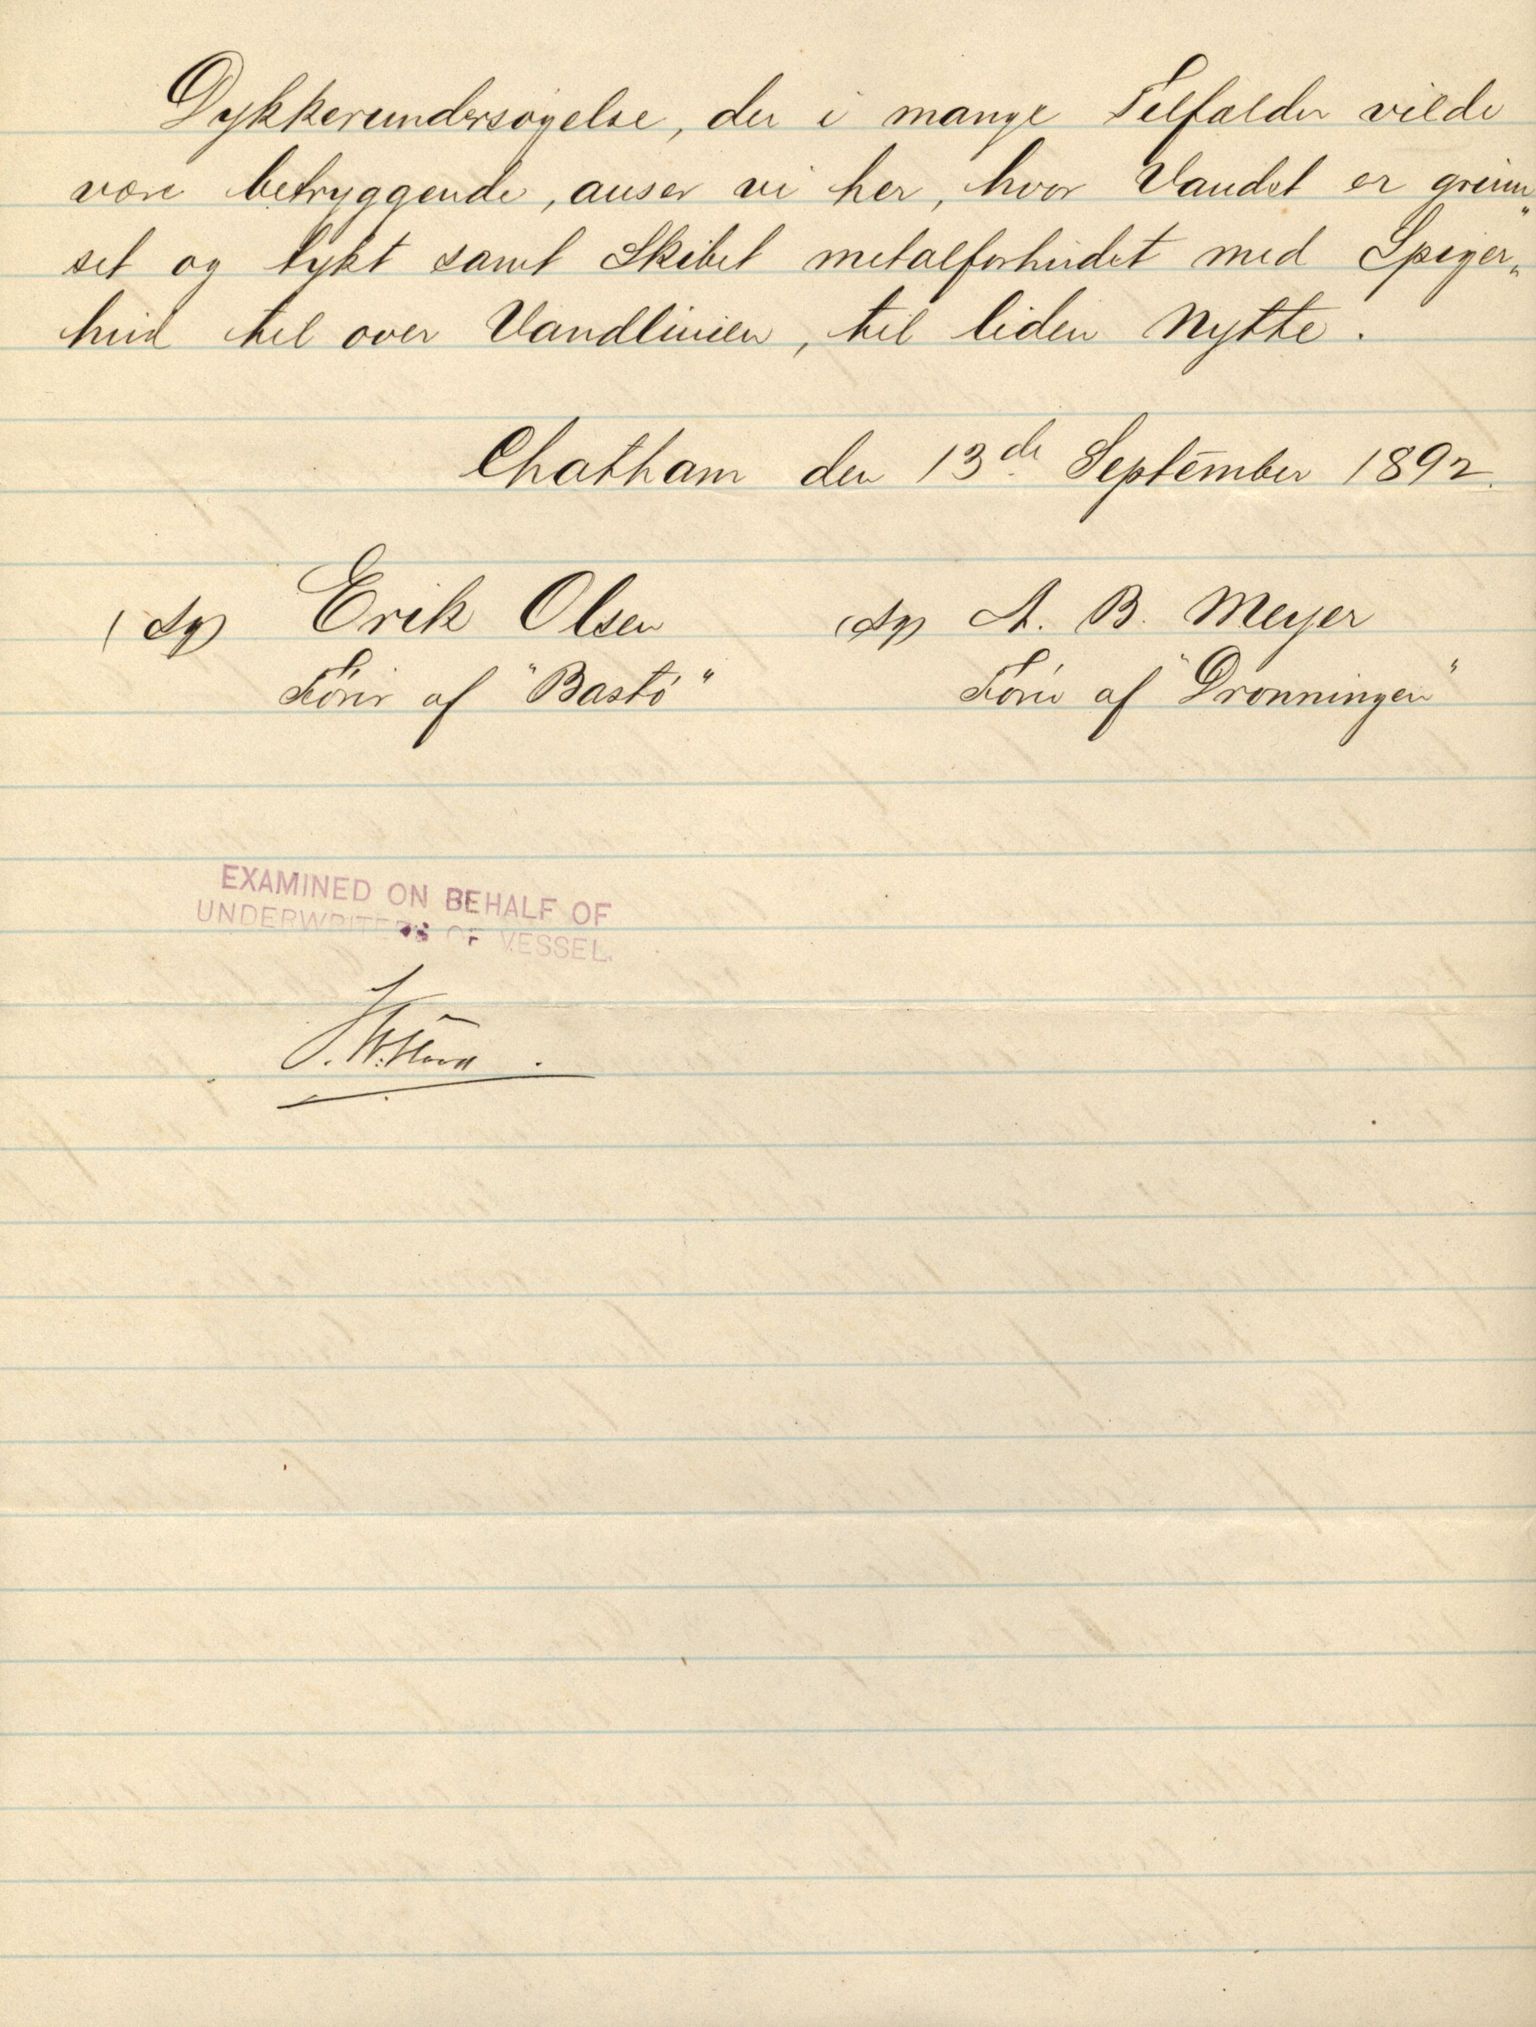 Dykkerundersøgelse, der i mange Tilfælder vilde
være betryggende, anser vi her, hvor Vandet er grum„
set og tykt samt Skibet metalforhudet med Spiger„
hud til over Vandlinien, til liden Nytte.
Chatham den 13de September 1892.
(Sg) Erik Olsen (Sg) A. B. Meyer
Fører af "Bastö" Fører af "Dronningen"
EXAMINED ON BEHALF OF
UNDERWRITERS OF VESSEL.